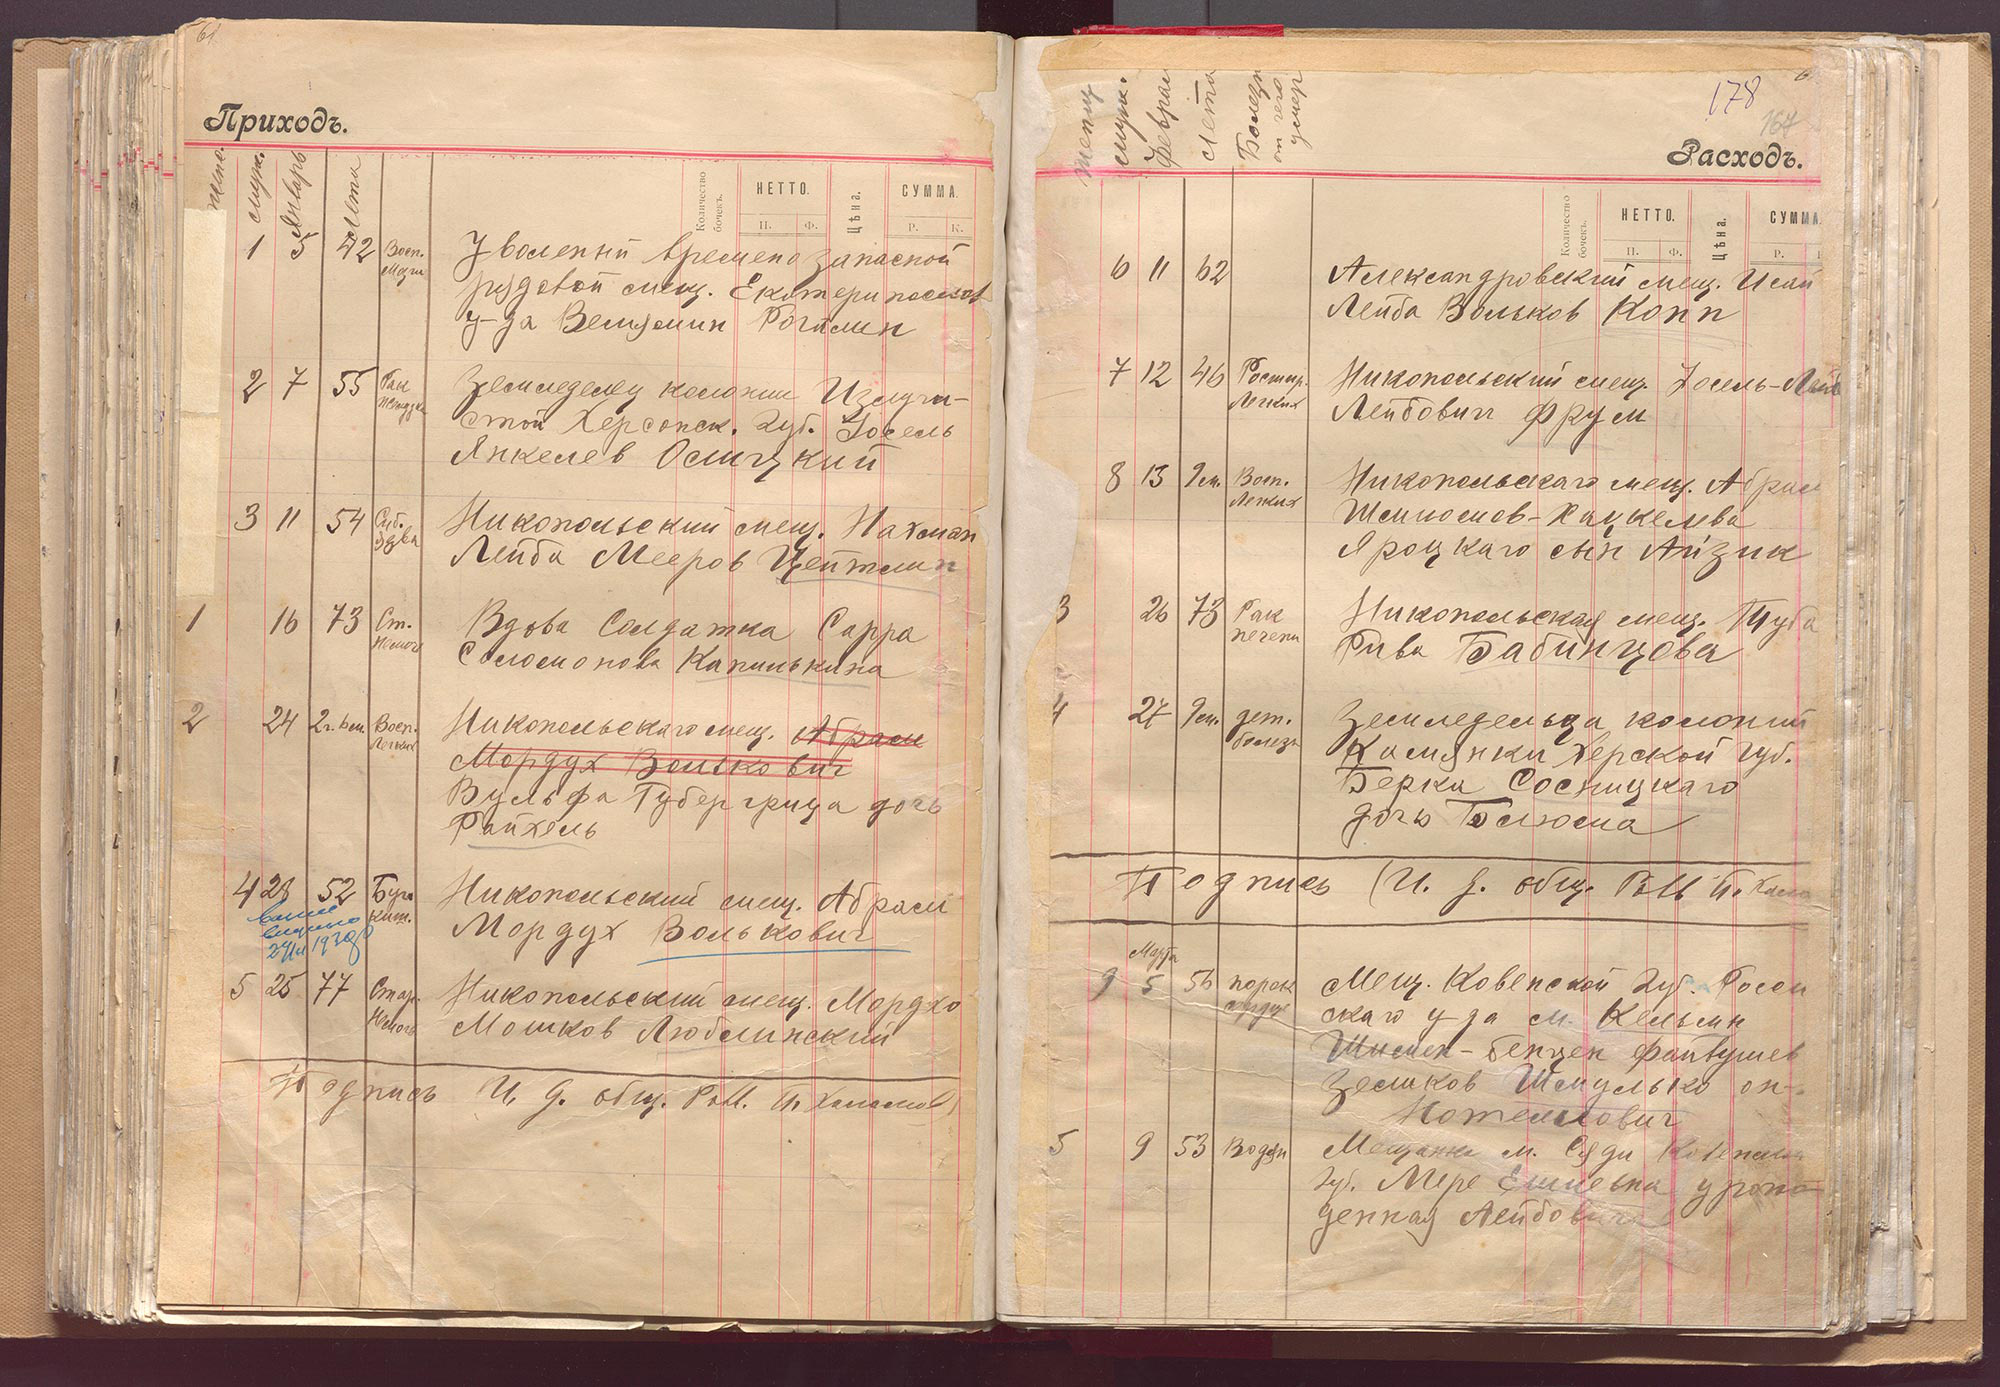 61
Приходъ.
жен.
муж.
Январь
Лета
Количество бочекъ.
НЕТТО.
П. Ф.
Цѣна.
СУММА.
Р. К.
1 5 42 Восп.
Уволеный времено запасной
рудовой мещ.
у-да Велямин Рогалин
2 7 55 Рак
Земледелец колонии Излучи-
стой Херсонск. Губ. Иосель
Янкелев Ослицкий
3 11 54 Сиб.
язва
Никопольский мещ. Нахман
Лейба Мееров Цейтлин
1 16 73 Ст.
Вдова Солдатка Сарра
Соломонова Капилькина
2 24 2 г. 6 м. Восп.
Легких
Никопольскаго мещ. Абрам
Мордух Волькович
Вульфа Губергрица дочь
Райхель
4 28 52
Никопольский мещ. Абрам
Мордух Волькович
5 25 77 Стар.
Никопольский мещ. Мордхо
Мошков Люблинский
Подпись (И. д. общ. РаМ. П. Халамов)
178
167
Расходъ.
женщ
муж.
Феврал
Лета
Болезн
от чего
умер
Количество бочекъ.
НЕТТО.
П. Ф.
Цѣна.
СУММА
Р.
6 11 62
Александровский мещ. Исай
Лейба Вольков Копп
7 12 46 Росшир.
Легких
Никопольский мещ. Иосель-Лейб
Лейбович Фрум
8 13 9 м. Восп.
Легких
Никопольскаго мещ. Абрам
Хацкелева
Яроцкаго сын Айзик
3 26 73 Рак
печени
Никопольская мещ. Туба
Рива Бабинцова
4 27 9 м. дет.
болезн
Земледельца колоний
Камянки Херской Губ.
Берка Сосницкаго
дочь Блюма
Подпись (И. д. общ. РаМ П. Хала
Марта
9 5 56 порок
сердца
Мещ. Ковенской Губ. Росси
скаго у-да м. Кельми
Шимен-бенцен Файвушев
Зеликов Шмулько он-
Нотелович
5 9 53 Водян
Мещанка м. Сяди Ковенской
Губ. Мере Елиевна урож-
денная Лейбович